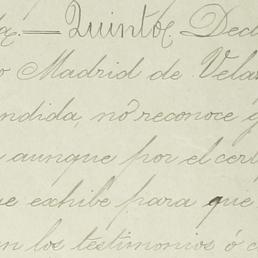 Quinto. Decl
o Madrid de Vela
endida, no reconoce g
aunque por el cer
ue exhibe para que
en los testimonios ó c